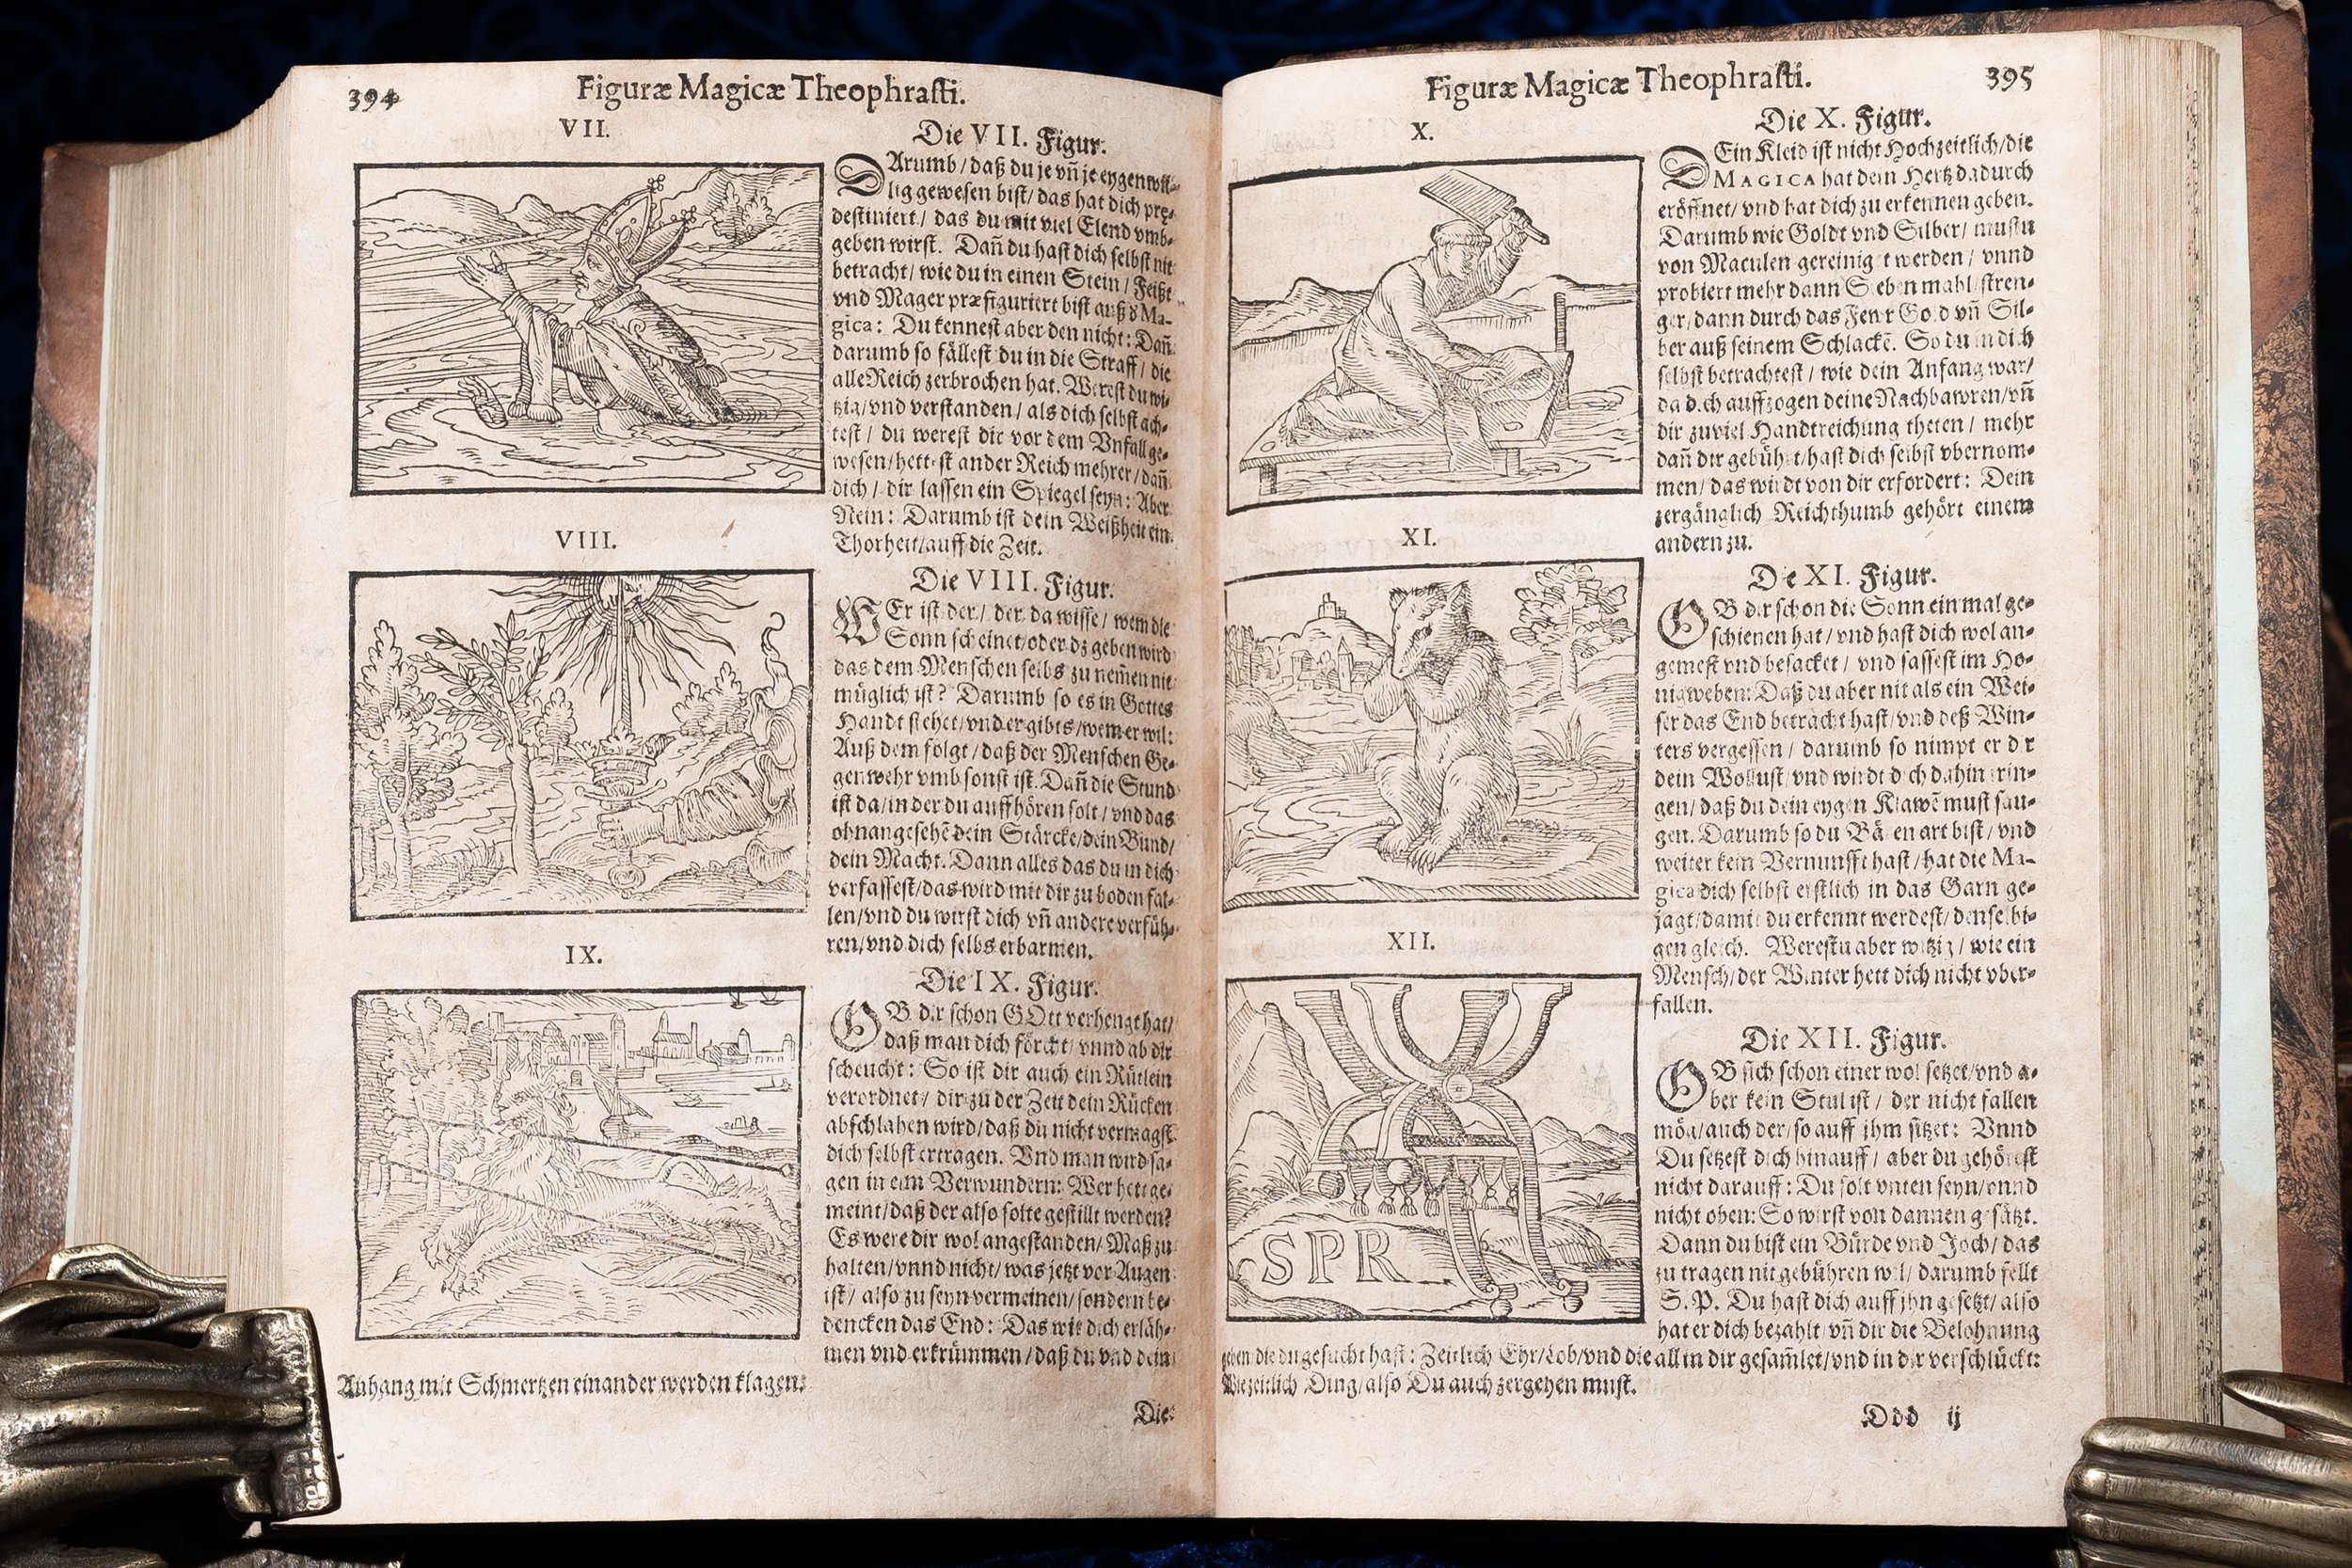 394 Figuræ Magicæ Theophrasti.
VII.
Die VII. Figur.
DArumb/ daß du je vñ je eygenwil-
lig gewesen bist/ das hat dich prę-
destiniert/ das du mit viel Elend vmb-
geben wirst. Dañ du hast dich selbst nit
betracht/ wie du in einen Stein/ Feißt
vnd Mager præfiguriert bist auß d Ma-
gica: Du kennest aber den nicht: Dañ
darumb so fällest du in die Straff/ die
alle Reich zerbrochen hat. Werest du wi-
tzig/ vnd verstanden/ als dich selbst ach-
test/ du werest dir vor dem Vnfall ge-
wesen/ hettest ander Reich mehrer/ dañ
dich/ dir lassen ein Spiegel seyn: Aber
Nein: Darumb ist dein Weißheit ein
Thorheit/ auff die Zeit.
VIII.
Die VIII. Figur.
WEr ist der/ der da wisse/ wem die
Sonn scheinet/ oder dz geben wird
das dem Menschen selbs zu nem̃en nit
müglich ist? Darumb so es in Gottes
Handt stehet/ vnd er gibts/ wem er wil:
Auß dem folgt/ daß der Menschen Ge-
genwehr vmb sonst ist. Dañ die Stund
ist da/ in der du auffhören solt/ vnd das
ohnangesehẽ dein Stärcke/ dein Bund/
dein Macht. Dann alles das du in dich
verfassest/ das wird mit dir zu boden fal-
len/ vnd du wirst dich vñ andere verfüh-
ren/ vnd dich selbs erbarmen.
IX.
Die IX. Figur.
OB dir schon GOtt verhengt hat/
daß man dich förcht/ vnnd ab dir
scheucht: So ist dir auch ein Rütlein
verordnet/ dir zu der Zeit dein Rücken
abschlahen wird/ daß du nicht vermagst
dich selbst ertragen. Vnd man wird sa-
gen in eim Verwundern: Wer hett ge-
meint/ daß der also solte gestillt werden?
Es were dir wol angestanden/ Maß zu
halten/ vnnd nicht/ was jetzt vor Augen
ist/ also zu seyn vermeinen/ sondern be-
dencken das End: Das wir dich erläh-
men vnd erkrümmen/ daß du vnd dein
Anhang mit Schmertzen einander werden klagen:
Die
Figuræ Magicæ Theophrasti. 395
X.
Die X. Figur.
DEin Kleid ist nicht Hochzeitlich/ die
MAGICA hat dein Hertz dadurch
eröffnet/ vnd hat dich zu erkennen geben.
Darumb wie Goldt vnd Silber/ mustu
von Maculen gereiniget werden/ vnnd
probiert mehr dann Siebenmahl/ stren-
ger/ dann durch das Fewr Gold vñ Sil-
ber auß seinem Schlackẽ. So du in dich
selbst betrachtest/ wie dein Anfang war/
da dich auffzogen deine Nachbawren/ vñ
dir zuviel Handtreichung theten/ mehr
dañ dir gebührt/ hast dich selbst vbernom-
men/ das wirdt von dir erfordert: Dein
zergänglich Reichthumb gehört einem
andern zu.
XI.
Die XI. Figur.
OB dir schon die Sonn ein mal ge-
schienen hat/ vnd hast dich wol an-
gemest vnd besacket/ vnd sassest im Ho-
nigweben: Daß du aber nit als ein Wei-
ser das End betracht hast/ vnd deß Win-
ters vergessen/ darumb so nimpt er dir
dein Wollust/ vnd wirdt dich dahin brin-
gen/ daß du dein eygen Klawẽ must sau-
gen. Darumb so du Bären art bist/ vnd
weiter kein Vernunfft hast/ hat die Ma-
gica dich selbst erstlich in das Garn ge-
jagt/ damit du erkennt werdest/ denselbi-
gen gleich. Werestu aber witzig/ wie ein
Mensch/ der Winter hett dich nicht vber-
fallen.
XII.
SPR
Die XII. Figur.
OB sich schon einer wol setzet/ vnd a-
ber kein Stul ist/ der nicht fallen
mög/ auch der/ so auff jhm sitzet: Vnnd
Du setzest dich hinauff/ aber du gehörest
nicht darauff: Du solt vnten seyn/ vnnd
nicht oben: So wirst von dannen gesätzt.
Dann du bist ein Bürde vnd Joch/ das
zu tragen nit gebühren wil/ darumb fellt
S. P. Du hast dich auff jhn gesetzt/ also
hat er dich bezahlt/ vñ dir die Belohnung
geben/ die du gesucht hast: Zeitlich Ehr/ Lob/ vnd die all in dir gesam̃let/ vnd in dir verschlückt:
Wie zeitlich Ding/ also Du auch zergehen must.
Ddd ij